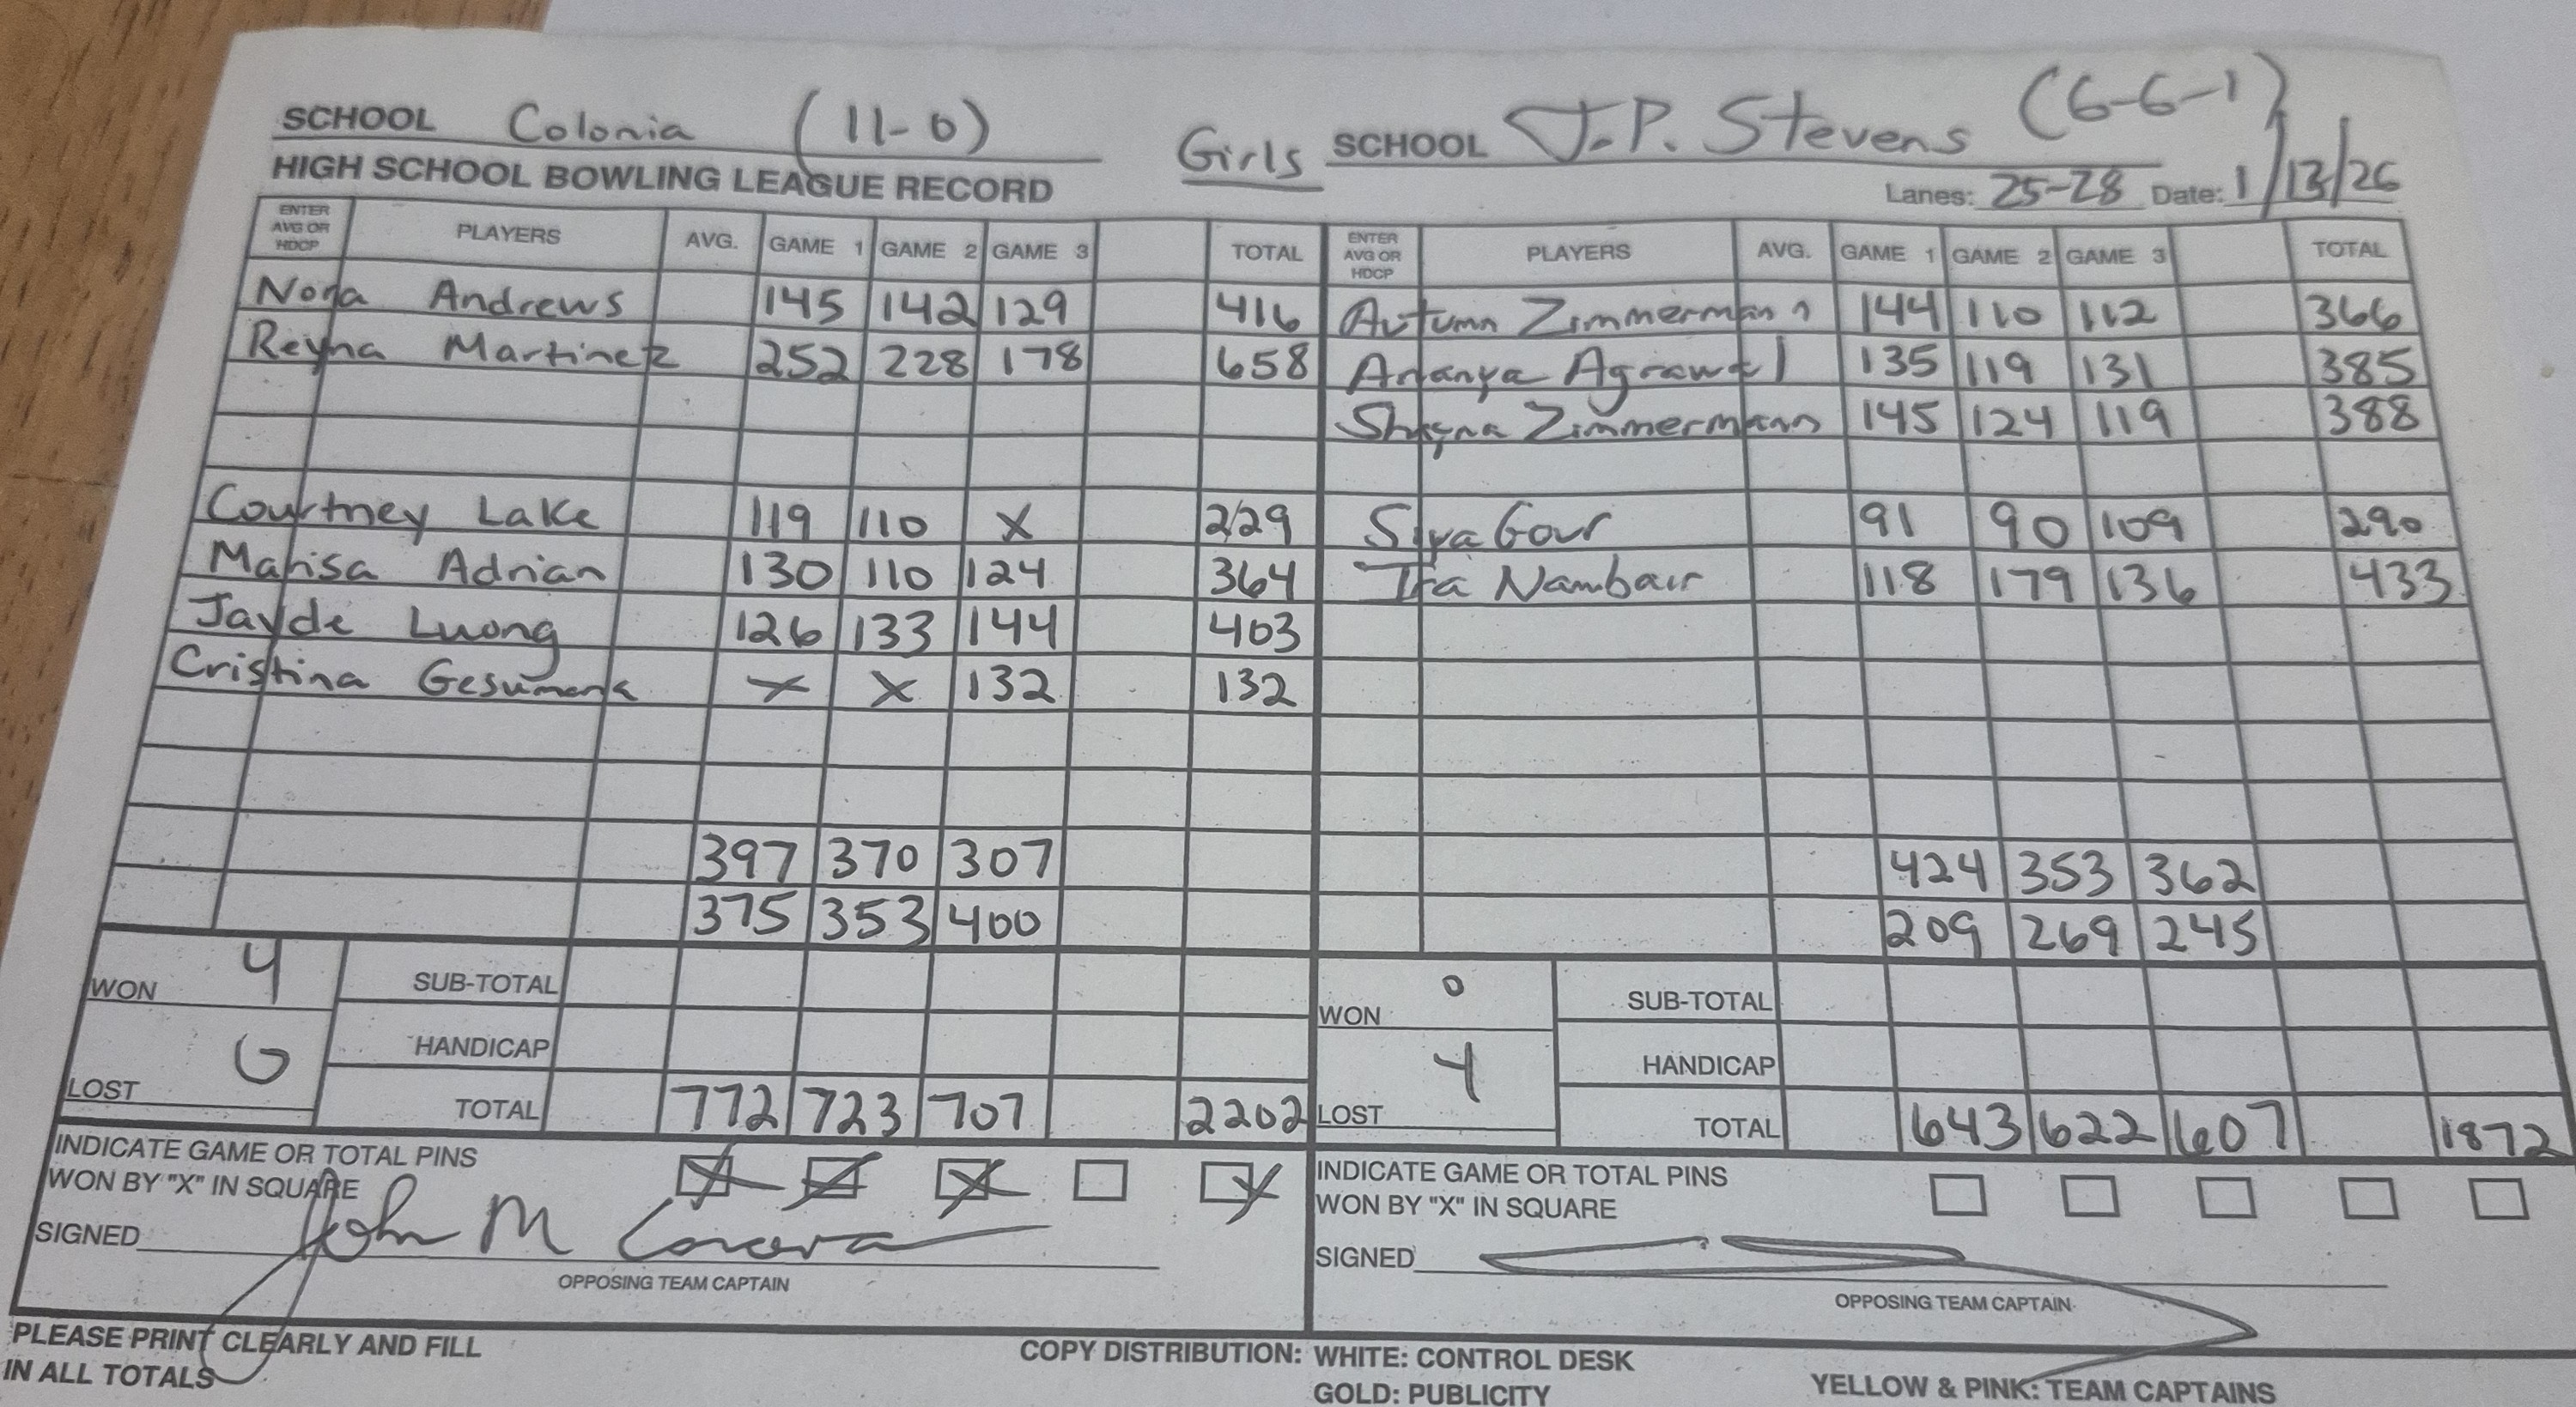 SCHOOL Colonia (11-0) Girls SCHOOL J.P. Stevens (6-6-1)
HIGH SCHOOL BOWLING LEAGUE RECORD Lanes: 25-28 Date: 1/13/26
ENTER AVG OR HDCP PLAYERS AVG. GAME 1 GAME 2 GAME 3 TOTAL ENTER AVG OR HDCP PLAYERS AVG. GAME 1 GAME 2 GAME 3 TOTAL
Nora Andrews 145 142 129 416 Autumn Zimmermann 144 110 112 366
Reyna Martinez 252 228 178 658 Ananya Agrawal 135 119 131 385
Shayna Zimmermann 145 124 119 388
Courtney Lake 119 110 X 229 Siya Gour 91 90 109 290
Marisa Adrian 130 110 124 364 Ira Nambair 118 179 136 433
Jayde Luong 126 133 144 403
Cristina X X 132 132
397 370 307 424 353 362
375 353 400 209 269 245
WON 4 SUB-TOTAL WON 0 SUB-TOTAL
LOST 0 HANDICAP LOST 4 HANDICAP
TOTAL 772 723 707 2202 TOTAL 643 622 607 1872
INDICATE GAME OR TOTAL PINS X X X X INDICATE GAME OR TOTAL PINS
WON BY "X" IN SQUARE WON BY "X" IN SQUARE
SIGNED John M SIGNED
OPPOSING TEAM CAPTAIN OPPOSING TEAM CAPTAIN
PLEASE PRINT CLEARLY AND FILL
IN ALL TOTALS
COPY DISTRIBUTION: WHITE: CONTROL DESK
GOLD: PUBLICITY YELLOW & PINK: TEAM CAPTAINS